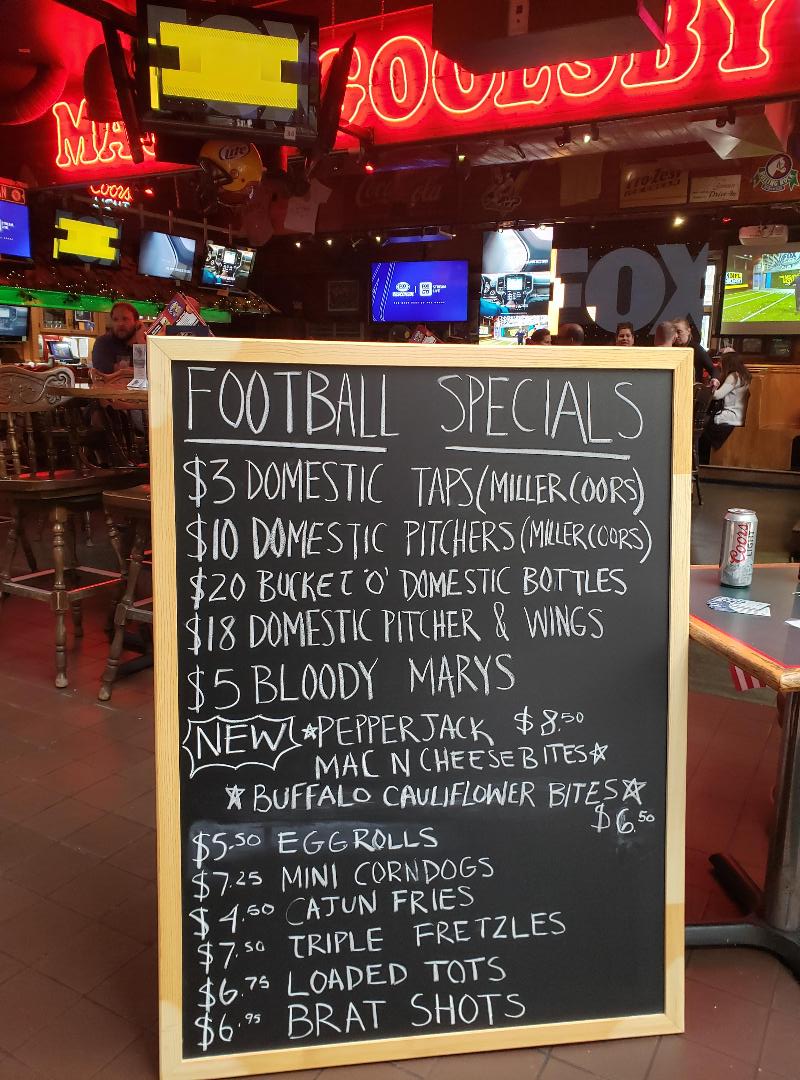 MA
GOOLSBY
Lite
Coors
Coca-Cola
FOX
NFL
FOOTBALL SPECIALS
$3 DOMESTIC TAPS (MILLER COORS)
$10 DOMESTIC PITCHERS (MILLER COORS)
$20 BUCKET 'O' DOMESTIC BOTTLES
$18 DOMESTIC PITCHER & WINGS
$5 BLOODY MARYS
NEW ☆PEPPERJACK $8.50
MAC N CHEESE BITES☆
☆BUFFALO CAULIFLOWER BITES☆
$6.50
$5.50 EGGROLLS
$7.25 MINI CORNDOGS
$4.50 CAJUN FRIES
$7.50 TRIPLE FRETZLES
$6.75 LOADED TOTS
$6.95 BRAT SHOTS
Coors
LIGHT